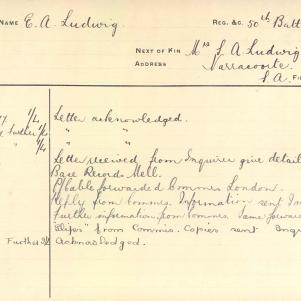 NAME E. A. Ludwig REG. &C. 50th Batt
NEXT OF KIN Mrs J. A. Ludwig
ADDRESS Narracoorte.
S.A.
1/4 Letter acknowledged.
further " "
1/4 " "
Letter received from Enquirer give detail
Base Records Melb.
Cable forwarded Commrs London.
Reply from Commrs. Information sent
further information from Commrs. Same forward
Slips" from Commis. Copies sent Enq
Further Acknowledged.